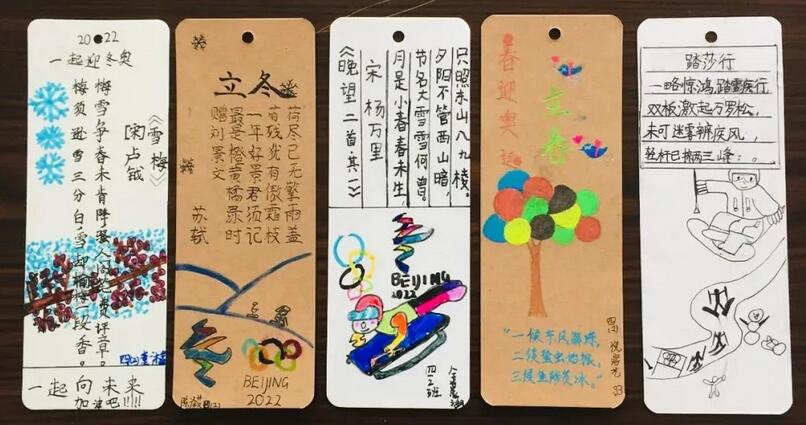 2022
一起迎冬奥
《雪梅》
[宋]卢钺
梅雪争春未肯降,骚人阁笔费评章。
梅须逊雪三分白,雪却输梅一段香。
四(2)
一起向未来
加油吧!!!!!
立冬
荷尽已无擎雨盖
菊残犹有傲霜枝
一年好景君须记
最是橙黄橘绿时
赠刘景文
苏轼
BEIJING
2022
只照东山八九棱。
夕阳不管西山暗,
节名大雪雪何曾。
月是小春春未生,
宋 杨万里
《晚望二首其一》
BEIJING
2022
四2班
春迎奥运
立春
"一候东风解冻,
二候蛰虫始振,
三候鱼陟负冰。"
四(2)
33
踏莎行
一略惊鸿,踏雪疾行,
双板激起万罗松,
未可迷雾辨疾风,
轻杆已拂两三峰。